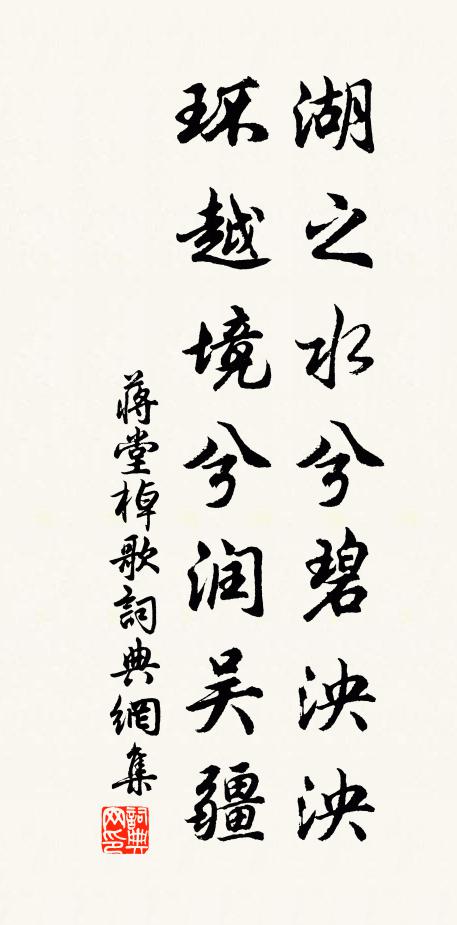 湖之水兮碧泱泱
环越境兮润吴疆
蒋堂棹歌詞典網集
詞典网印